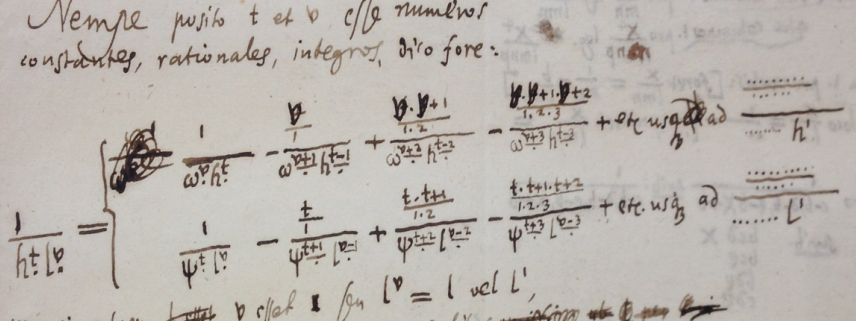 Nempe posito t et v esse numeros
constantes, rationales, integros, dico fore:
1/(h^t l^v) = { 1/(ω^v h^t) − (v/1)/(ω^(v+1) h^(t−1)) + (v·v+1/1·2)/(ω^(v+2) h^(t−2)) − (v·v+1·v+2/1·2·3)/(ω^(v+3) h^(t−3)) + etc. usq ad ......../...... h^1
1/(ψ^t l^v) − (t/1)/(ψ^(t+1) l^(v−1)) + (t·t+1/1·2)/(ψ^(t+2) l^(v−2)) − (t·t+1·t+2/1·2·3)/(ψ^(t+3) l^(v−3)) + etc. usq ad ......../...... l^1
v esset 1 seu l^v = l vel l^1,